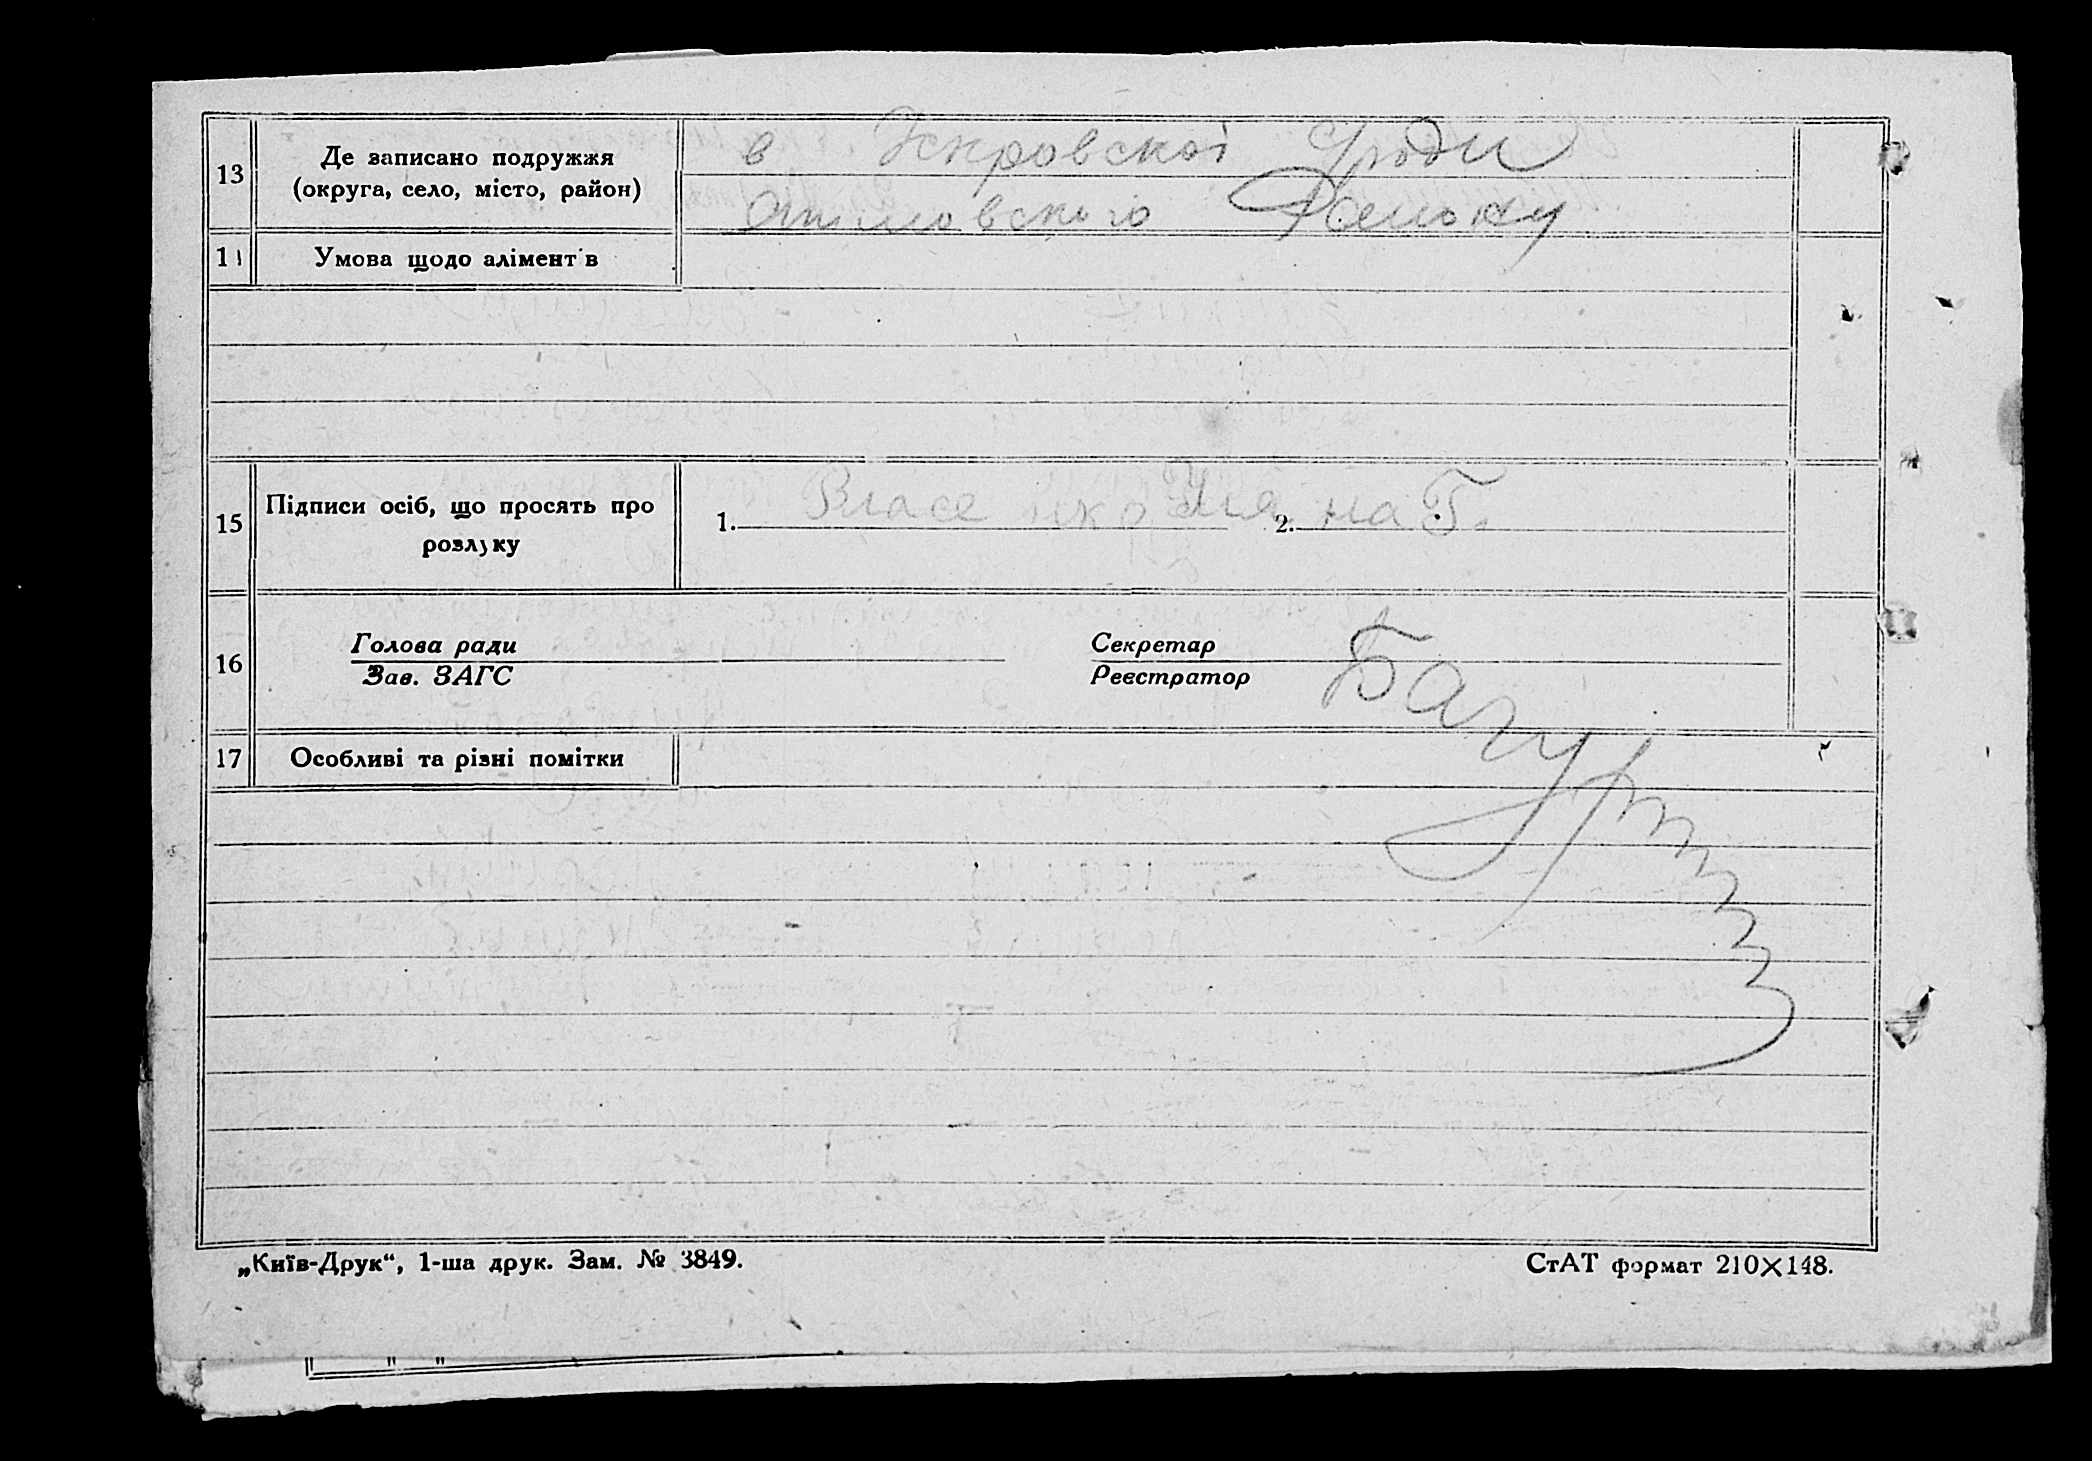 13 Де записано подружжя
(округа, село, місто, район)
в Искровској Сради
Района
14 Умова щодо аліментів
15 Підписи осіб, що просять про
розлуку
1. Власенко Уляна 2. Г.
16 Голова ради
Зав. ЗАГС
Секретар
Реєстратор
17 Особливі та різні помітки
„Київ-Друк“, 1-ша друк. Зам. № 3849.
СтАТ формат 210×148.